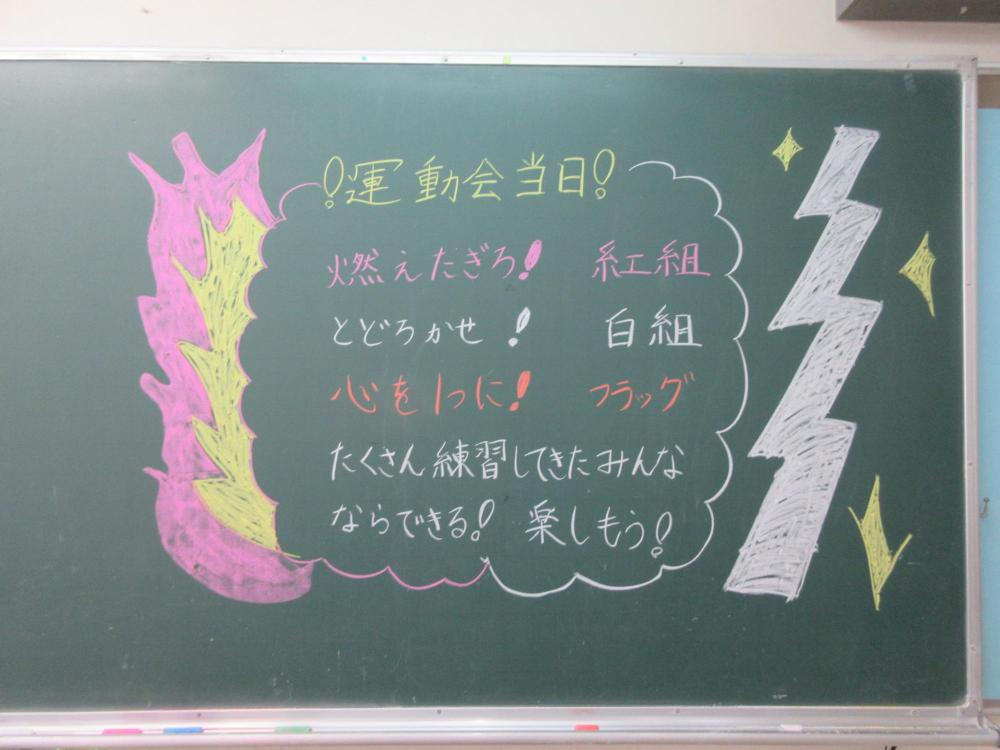 !運動会当日!
燃えたぎろ! 紅組
とどろかせ! 白組
心を1つに! フラッグ
たくさん練習してきたみんな
ならできる! 楽しもう!